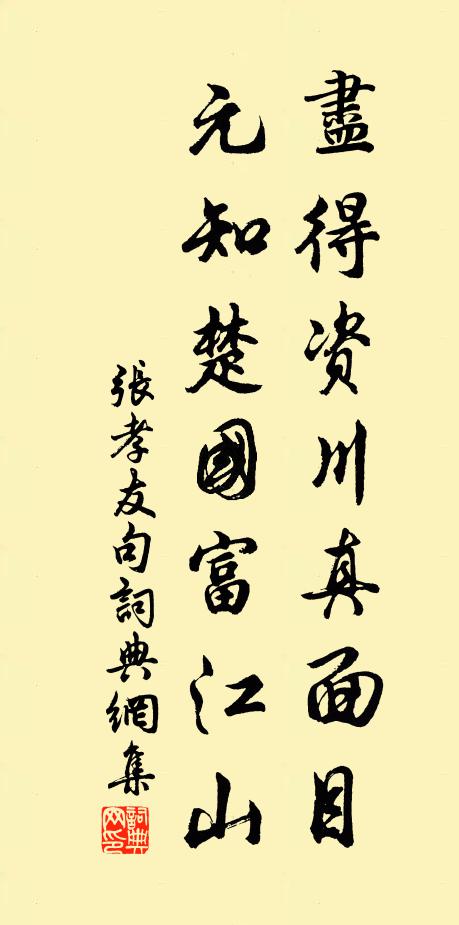 盡得资川真面目
元知楚國富江山
張孝友句詞典網集
詞典網印